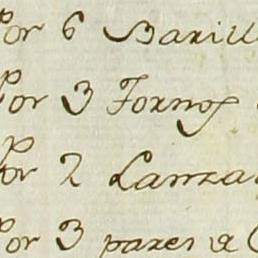 Por 6 Barill
Por 3 Tornos
Por 2 Lanza
Por 3 pares a